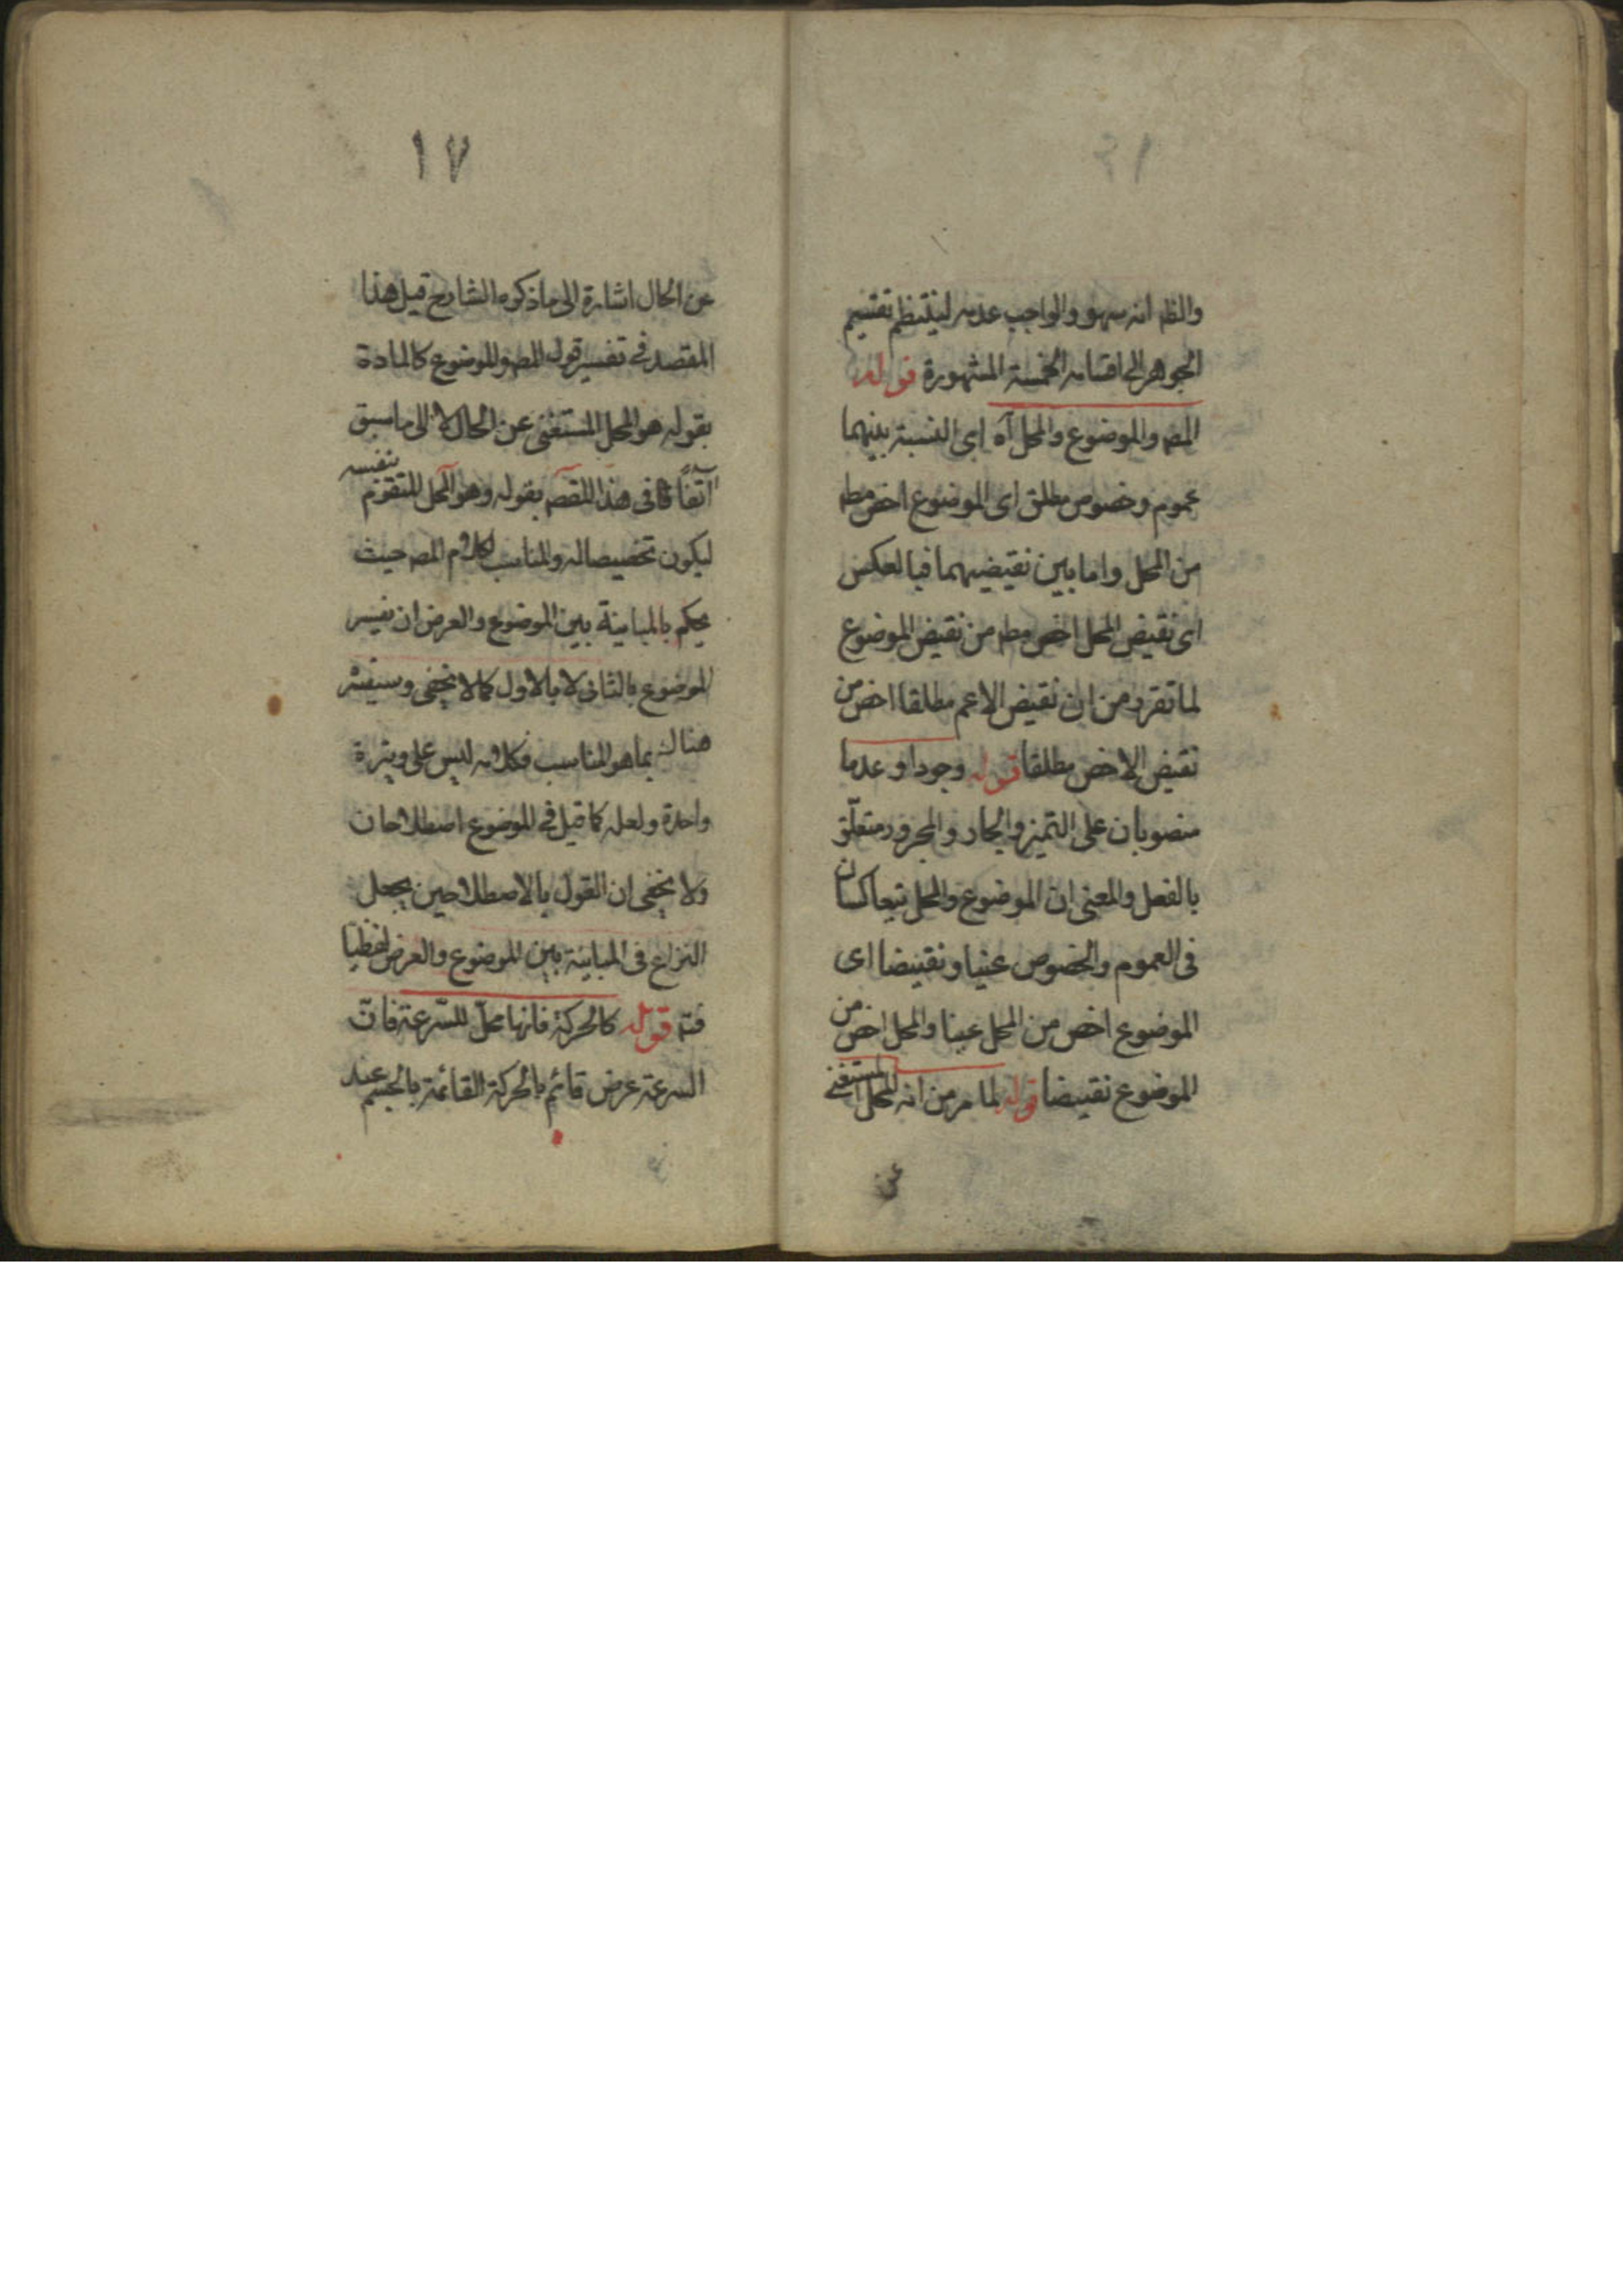 والظ انه سهو والواجب عدمه لينتظم تقسيم
الجوهر الى اقسامه الخمسة المشهورة قوله
المص والموضوع والمحل آه اى النسبة بينهما
عموم وخصوص مطلق اى الموضوع اخص مط
من المحل واما بين نقيضيهما فبالعكس
اى نقيض المحل اخص مط من نقيض الموضوع
لما تقرر من ان نقيض الاعم مطلقا اخص من
نقيض الاخص مطلقا قوله وجودا وعدما
منصوبان على التميز والجار والمجرور متعلّق
بالفعل والمعنى ان الموضوع والمحل يتعاكسان
فى العموم والخصوص عينا ونقيضا اى
الموضوع اخص من المحل عينا والمحل اخص من
الموضوع نقيضا قوله لما مر من انه المحل المستغنى
عن
١٧
عن الحال اشارة الى ما ذكره الشارح قبل هذا
المقصد فى تفسير قول المص والموضوع كالمادة
بقوله هو المحل المستغنى عن الحال لا الى ما سبق
آنفاً فى هذا المقصد بقوله وهو المحل المتقوّم بنفسه
ليكون تخصيصا له والمناسب لكلام المص حيث
يحكم بالمباينة بين الموضوع والعرض ان يفسر
الموضوع بالثانى لا بالاول كما لا يخفى وسيفسّر
هناك بما هو المناسب فكلامه ليس على وتيرة
واحدة ولعله كما قيل فى الموضوع اصطلاحان
ولا يخفى ان القول بالاصطلاحين يجعل
النزاع فى المباينة بين الموضوع والعرض لفظيّا
فتم قوله كالحركة فانها محلّ للسّرعة فانّ
السرعة عرض قائم بالحركة القائمة بالجسم عند